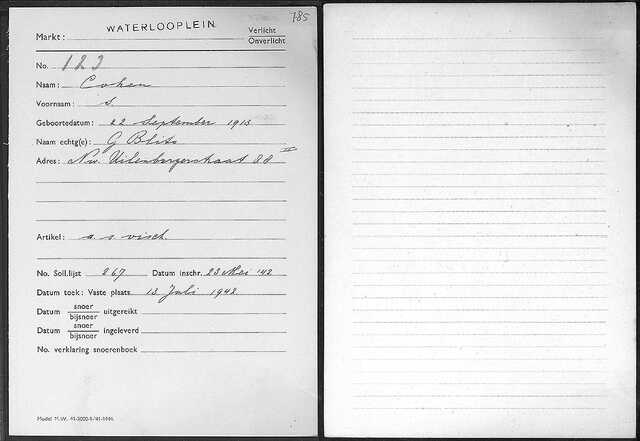 785
WATERLOOPLEIN
Markt:
Verlicht
Onverlicht
No. 123
Naam: Cohen
Voornam: S
Geboortedatum: 22 September 1913
Naam echtg(e): G Blits
Adres: Nw. Uilenburgerstraat 88 II
Artikel: a.s. visch
No. Soll.lijst 267 Datum inschr. 23 Mei '42
Datum toek: Vaste plaats 13 Juli 1942
Datum snoer bijsnoer uitgereikt
Datum snoer bijsnoer ingeleverd
No. verklaring snoerenboek
Model M.W.